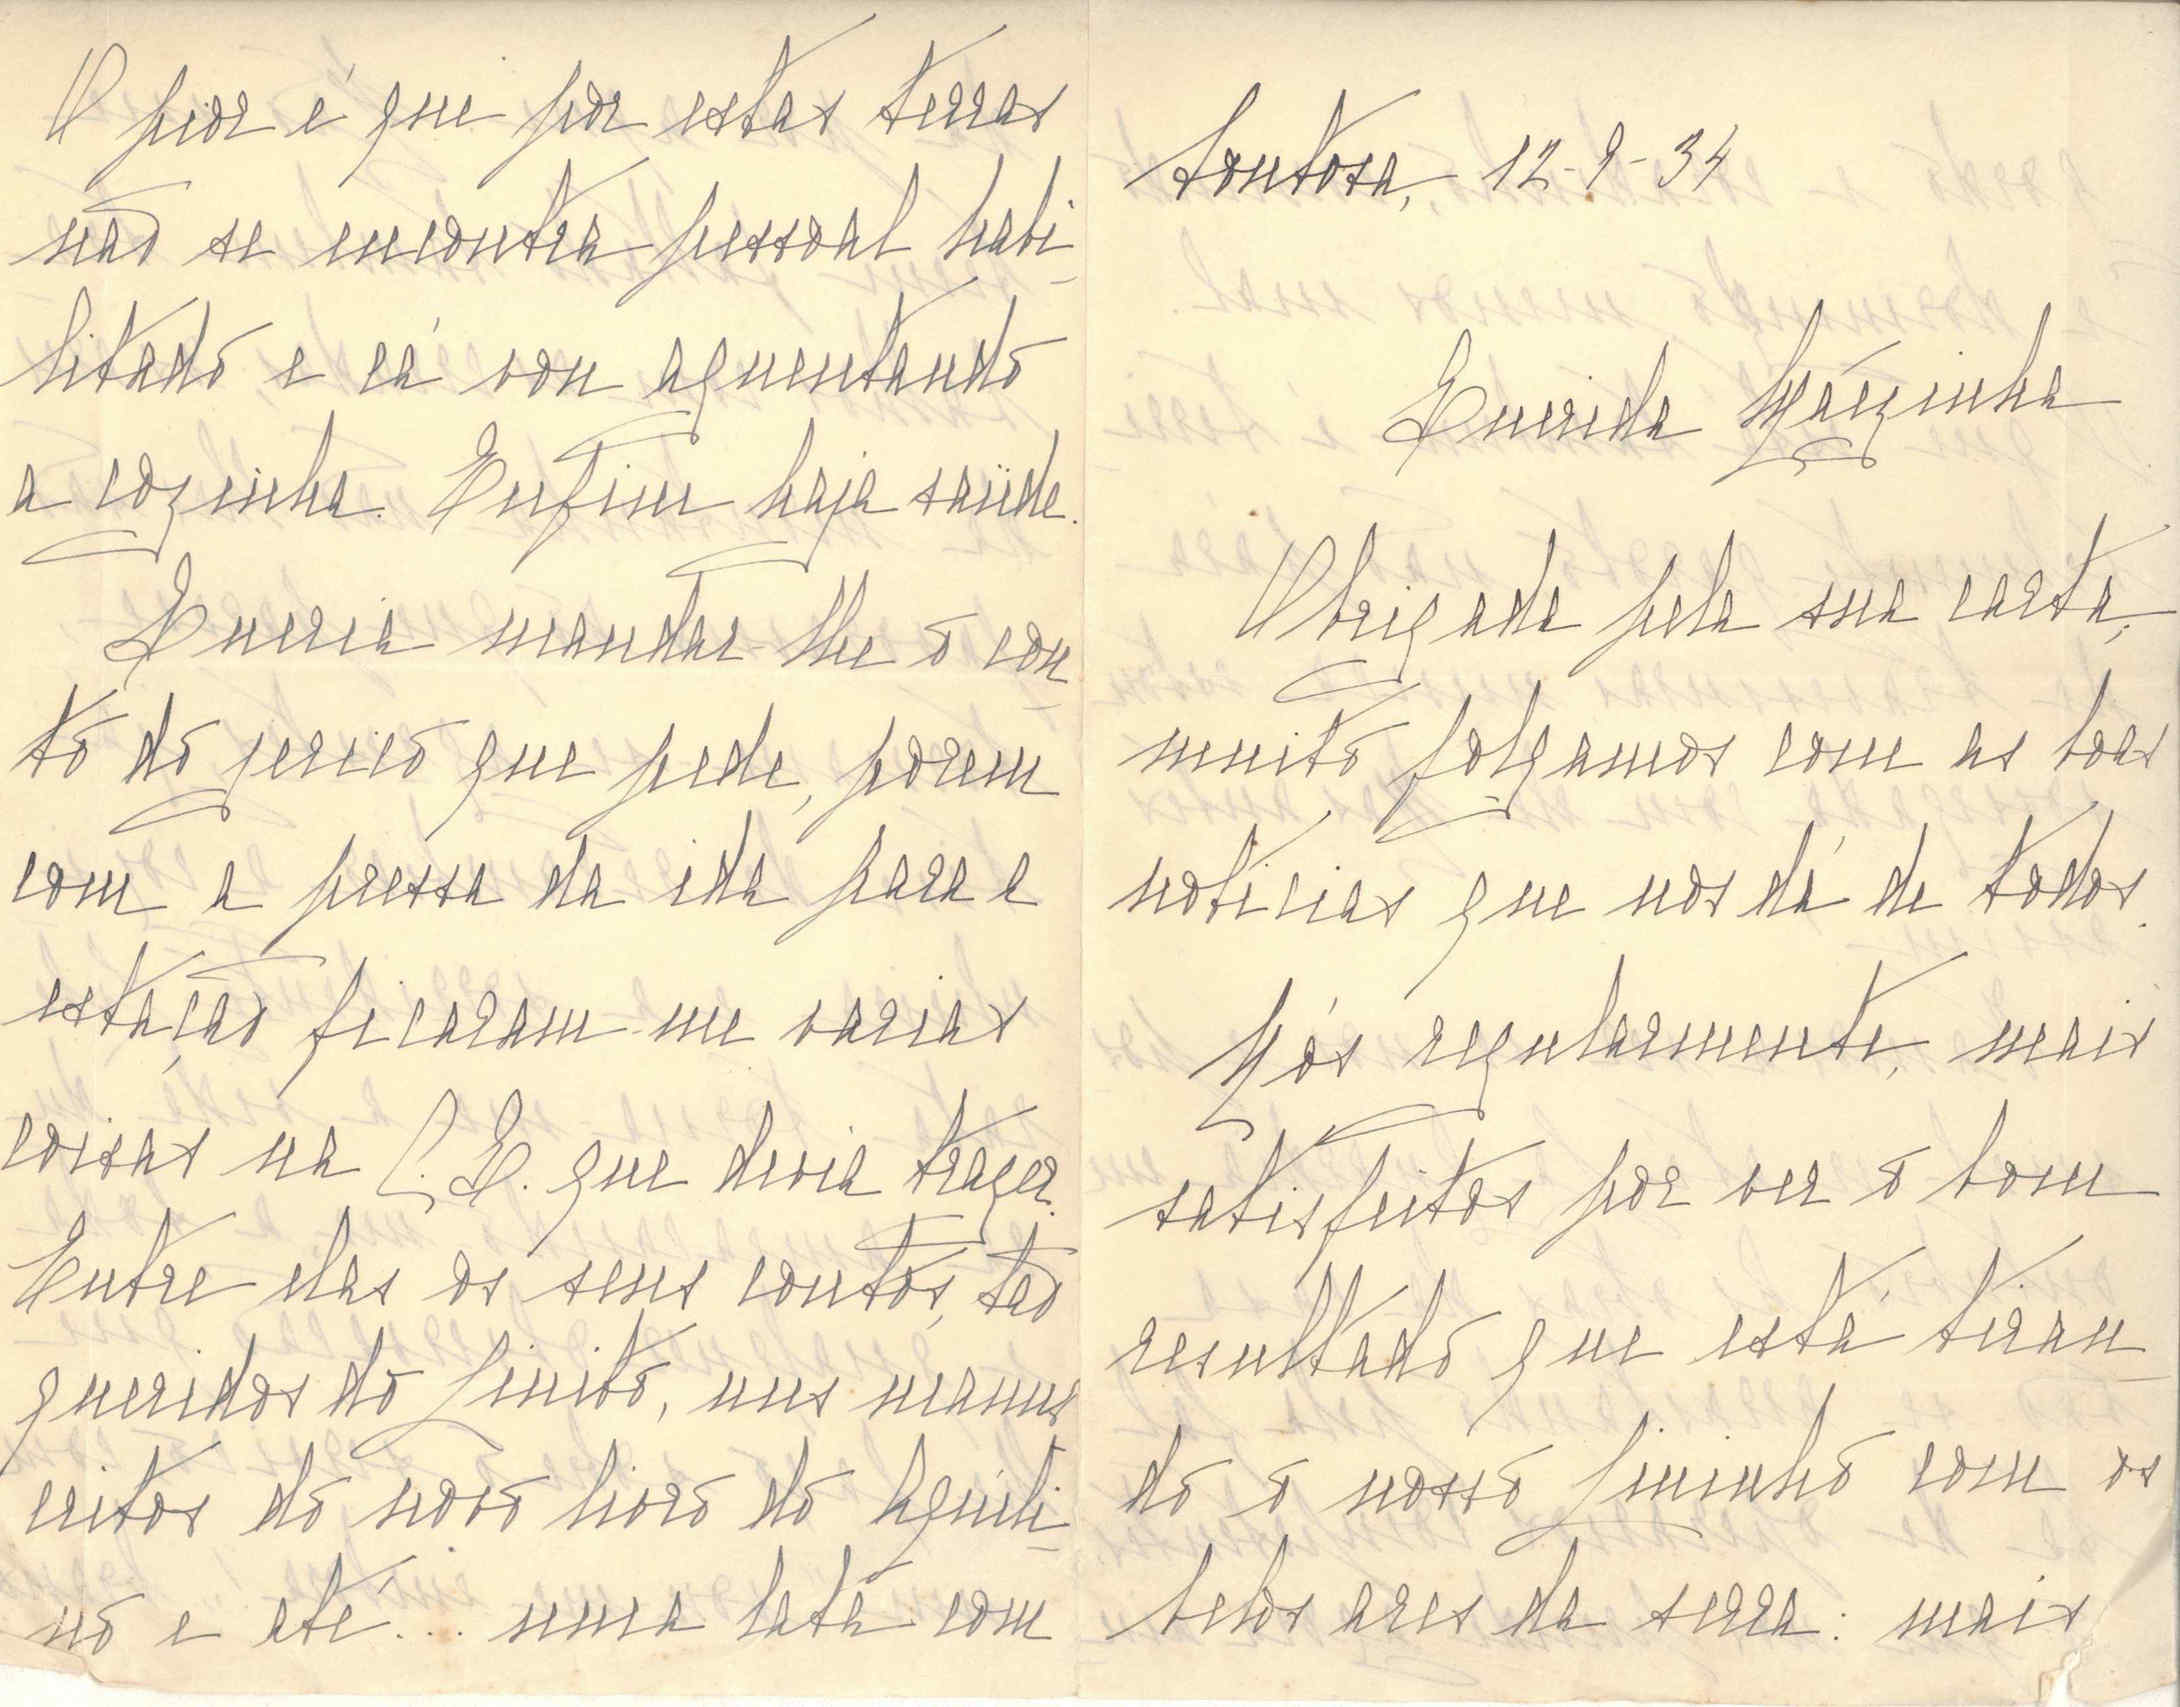 Soutosa, 12-9-34
Querida Mãezinha
Obrigada pela sua carta,
muito folgamos com as boas
noticias que nos dá de todos.
Nós regularmente, mais
satisfeitos por ver o bom
resultado que está tiran-
do o nosso Jininho com os
belos ares da serra: mais
O peor é que por estas terras
não se encontra pessoal habi-
litado e cá vou aguentando
a cozinha. Enfim haja saúde.
Queria mandar-lhe o con-
to do jerico que pede, porem
com a pressa da ida para a
estação ficaram-me varias
coisas na C. Q. que devia trazer.
Entre elas os seus contos, tão
queridos do Jinito, uns manus
critos do novo livro do Aquili-
no e até... uma lata com